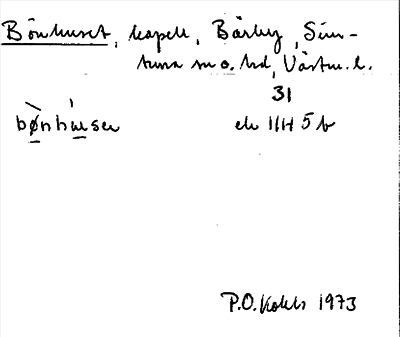 Bönhuset, kapell, Bärby, Sim-
tuna sn o. hd, Västm. l.
31
bønhu̱se
ek 11H 5 b
P.O. Kolsb 1973